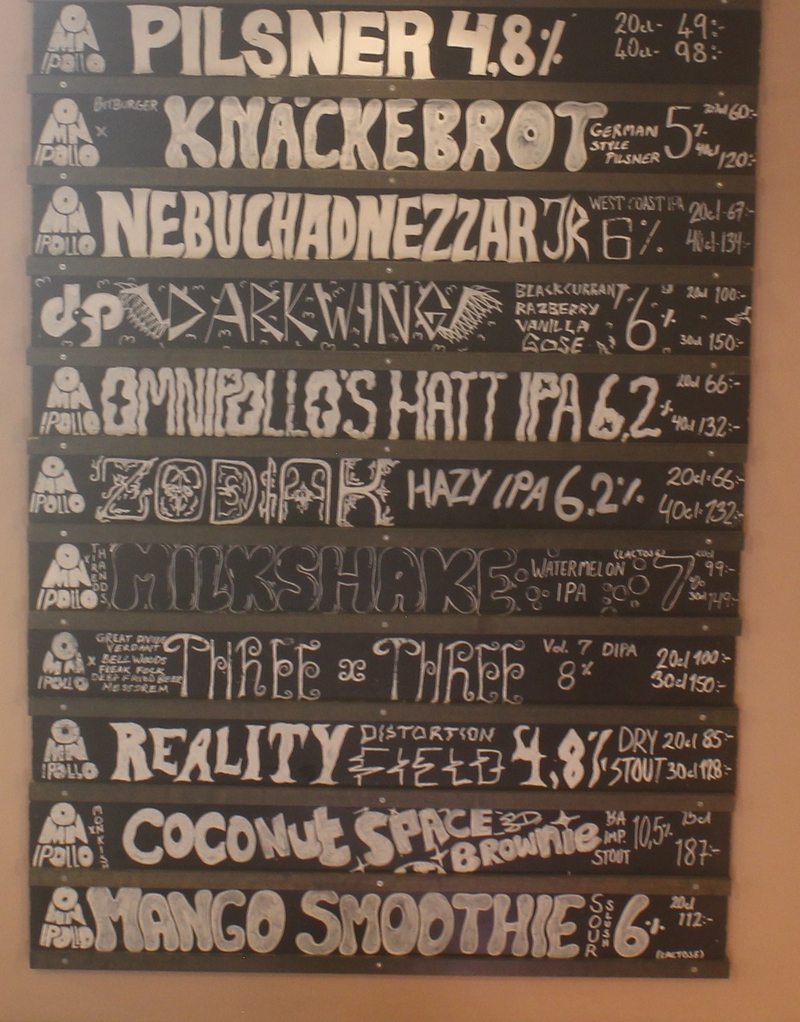 OMNIPOLLO PILSNER 4,8% 20cl- 49:-
40cl- 98:-
OMNIPOLLO x BITBURGER KNÄCKEBROT GERMAN STYLE PILSNER 5% 60:-
40cl 120:-
OMNIPOLLO NEBUCHADNEZZAR JR WEST COAST IPA 6% 20cl-67:-
40cl-134:-
dsp DARKWING BLACKCURRANT RAZBERRY VANILLA GOSE 6% 20cl 100:-
30cl 150:-
OMNIPOLLO OMNIPOLLO'S HATT IPA 6,2% 20cl 66:-
40cl 132:-
OMNIPOLLO ZODIAK HAZY IPA 6.2% 20cl-66:-
40cl-132:-
OMNIPOLLO x TIRED HANDS MILKSHAKE WATERMELON IPA (LACTOSE) 7% 20cl 99:-
30cl 149:-
OMNIPOLLO x GREAT DIVIDE
VERDANT
BELL WOODS
FREAK FOLK
DEEP FRIED BEER
MESSOREM
THREE x THREE Vol. 7 DIPA 8% 20cl 100:-
30cl 150:-
OMNIPOLLO REALITY DISTORTION FIELD 4,8% DRY STOUT 20cl 85:-
30cl 128:-
OMNIPOLLO x MONKISH COCONUT SPACE BROWNIE 3D BA IMP. STOUT 10,5% 15cl
187:-
OMNIPOLLO MANGO SMOOTHIE SOUR SLUSH 6% 20cl
112:-
(LACTOSE)